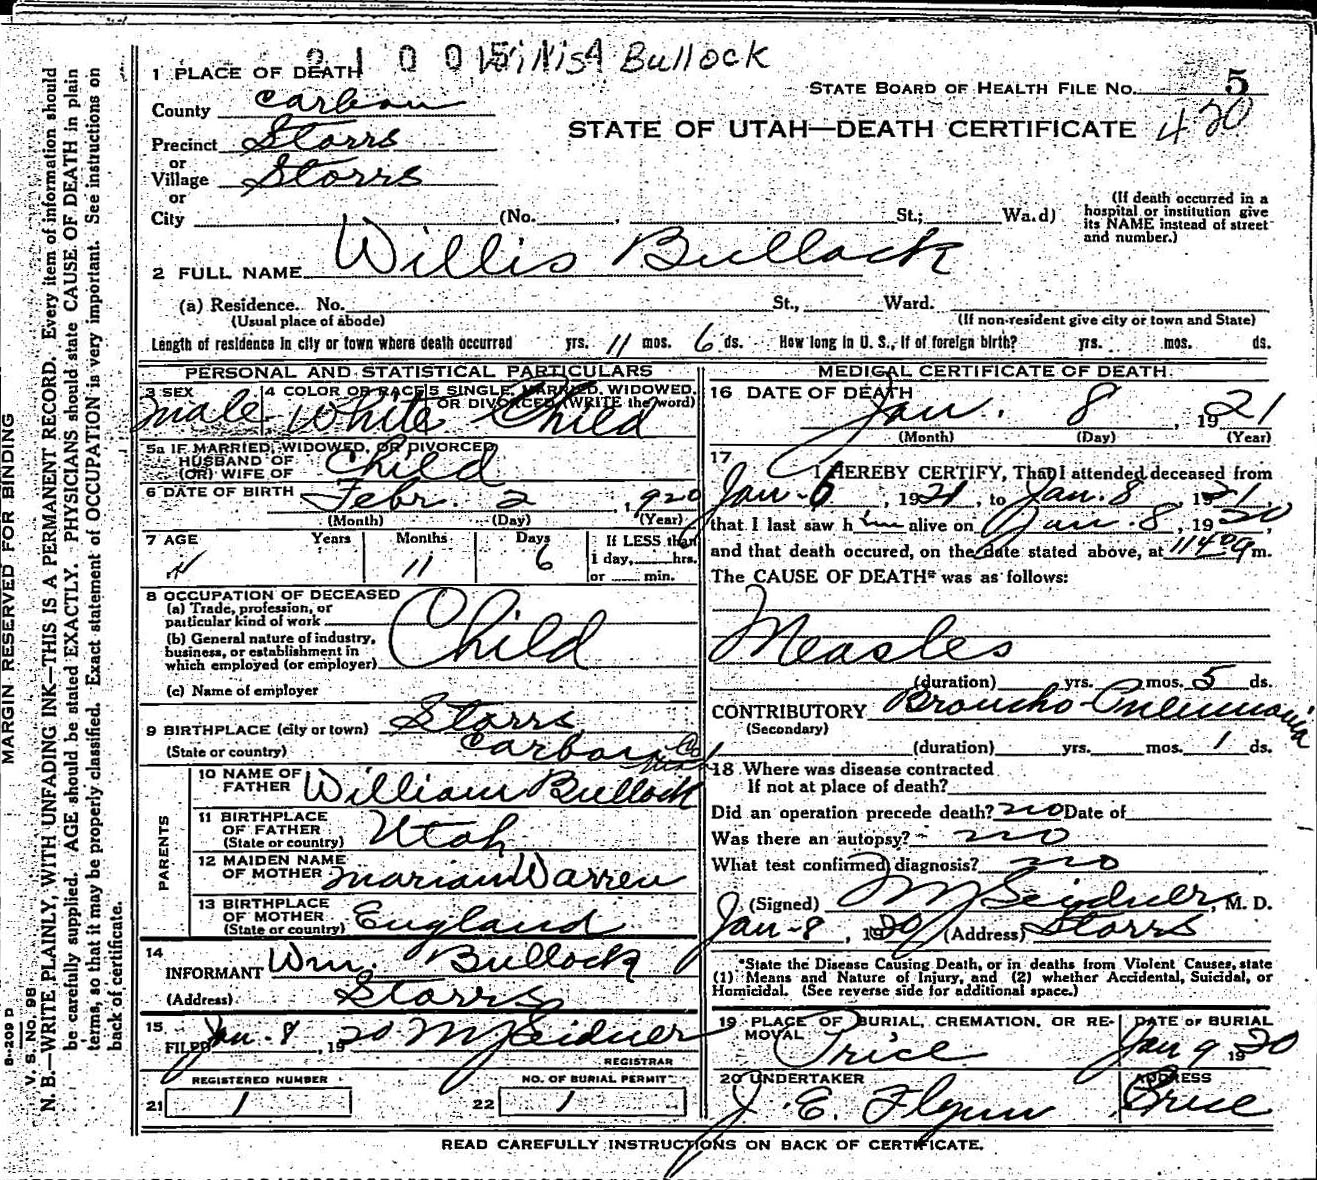 21005 Willis A Bullock
1 PLACE OF DEATH
STATE BOARD OF HEALTH FILE NO. 5
County Carbon
STATE OF UTAH—DEATH CERTIFICATE 420
Precinct Storrs
or
Village Storrs
or
City (No. , St.; Wa.d)
(If death occurred in a
hospital or institution give
its NAME instead of street
and number.)
2 FULL NAME Willis Bullock
(a) Residence. No. St., Ward.
(Usual place of abode) (If non-resident give city or town and State)
Length of residence in city or town where death occurred yrs. 11 mos. 6 ds. How long in U. S., if of foreign birth? yrs. mos. ds.
PERSONAL AND STATISTICAL PARTICULARS
3 SEX 4 COLOR OR RACE 5 SINGLE, MARRIED, WIDOWED,
OR DIVORCED (WRITE the word)
male White Child
5a IF MARRIED, WIDOWED, OR DIVORCED
HUSBAND OF
(OR) WIFE OF Child
6 DATE OF BIRTH Febr. 2, 1920
(Month) (Day) (Year)
7 AGE Years Months Days If LESS than
1 day, hrs.
or min.
11 6
8 OCCUPATION OF DECEASED
(a) Trade, profession, or
particular kind of work
(b) General nature of industry,
business, or establishment in
which employed (or employer)
Child
(c) Name of employer
9 BIRTHPLACE (city or town) Storrs
(State or country) Carbon Co
PARENTS
10 NAME OF
FATHER William Bullock
11 BIRTHPLACE
OF FATHER
(State or country) Utah
12 MAIDEN NAME
OF MOTHER Marian Warren
13 BIRTHPLACE
OF MOTHER
(State or country) England
14
INFORMANT Wm. Bullock
(Address) Storrs
15
FILED Jan. 8, 1920 M J Seidner
REGISTRAR
REGISTERED NUMBER NO. OF BURIAL PERMIT
21 1 22 1
MEDICAL CERTIFICATE OF DEATH
16 DATE OF DEATH
Jan. 8, 1921
(Month) (Day) (Year)
17
I HEREBY CERTIFY, That I attended deceased from
Jan. 6, 1921, to Jan. 8 1921,
that I last saw him alive on Jan. 8, 1920
and that death occured, on the date stated above, at 1140 a m.
The CAUSE OF DEATH* was as follows:
Measles
(duration) yrs. mos. 5 ds.
CONTRIBUTORY Broncho-Pneumonia
(Secondary)
(duration) yrs. mos. 1 ds.
18 Where was disease contracted
If not at place of death?
Did an operation precede death? no Date of
Was there an autopsy? no
What test confirmed diagnosis? no
(Signed) M J Seidner, M. D.
Jan-8, 1920 (Address) Storrs
*State the Disease Causing Death, or in deaths from Violent Causes, state
(1) Means and Nature of Injury, and (2) whether Accidental, Suicidal, or
Homicidal. (See reverse side for additional space.)
19 PLACE OF BURIAL, CREMATION, OR RE-
MOVAL Price
DATE OF BURIAL
Jan 9 1920
20 UNDERTAKER
J. E. Flynn
ADDRESS
Price
READ CAREFULLY INSTRUCTIONS ON BACK OF CERTIFICATE.
MARGIN RESERVED FOR BINDING
8-209 D
V. S. NO. 98
N. B.—WRITE PLAINLY, WITH UNFADING INK—THIS IS A PERMANENT RECORD. Every item of information should
be carefully supplied. AGE should be stated EXACTLY. PHYSICIANS should state CAUSE OF DEATH in plain
terms, so that it may be properly classified. Exact statement of OCCUPATION is very important. See instructions on
back of certificate.